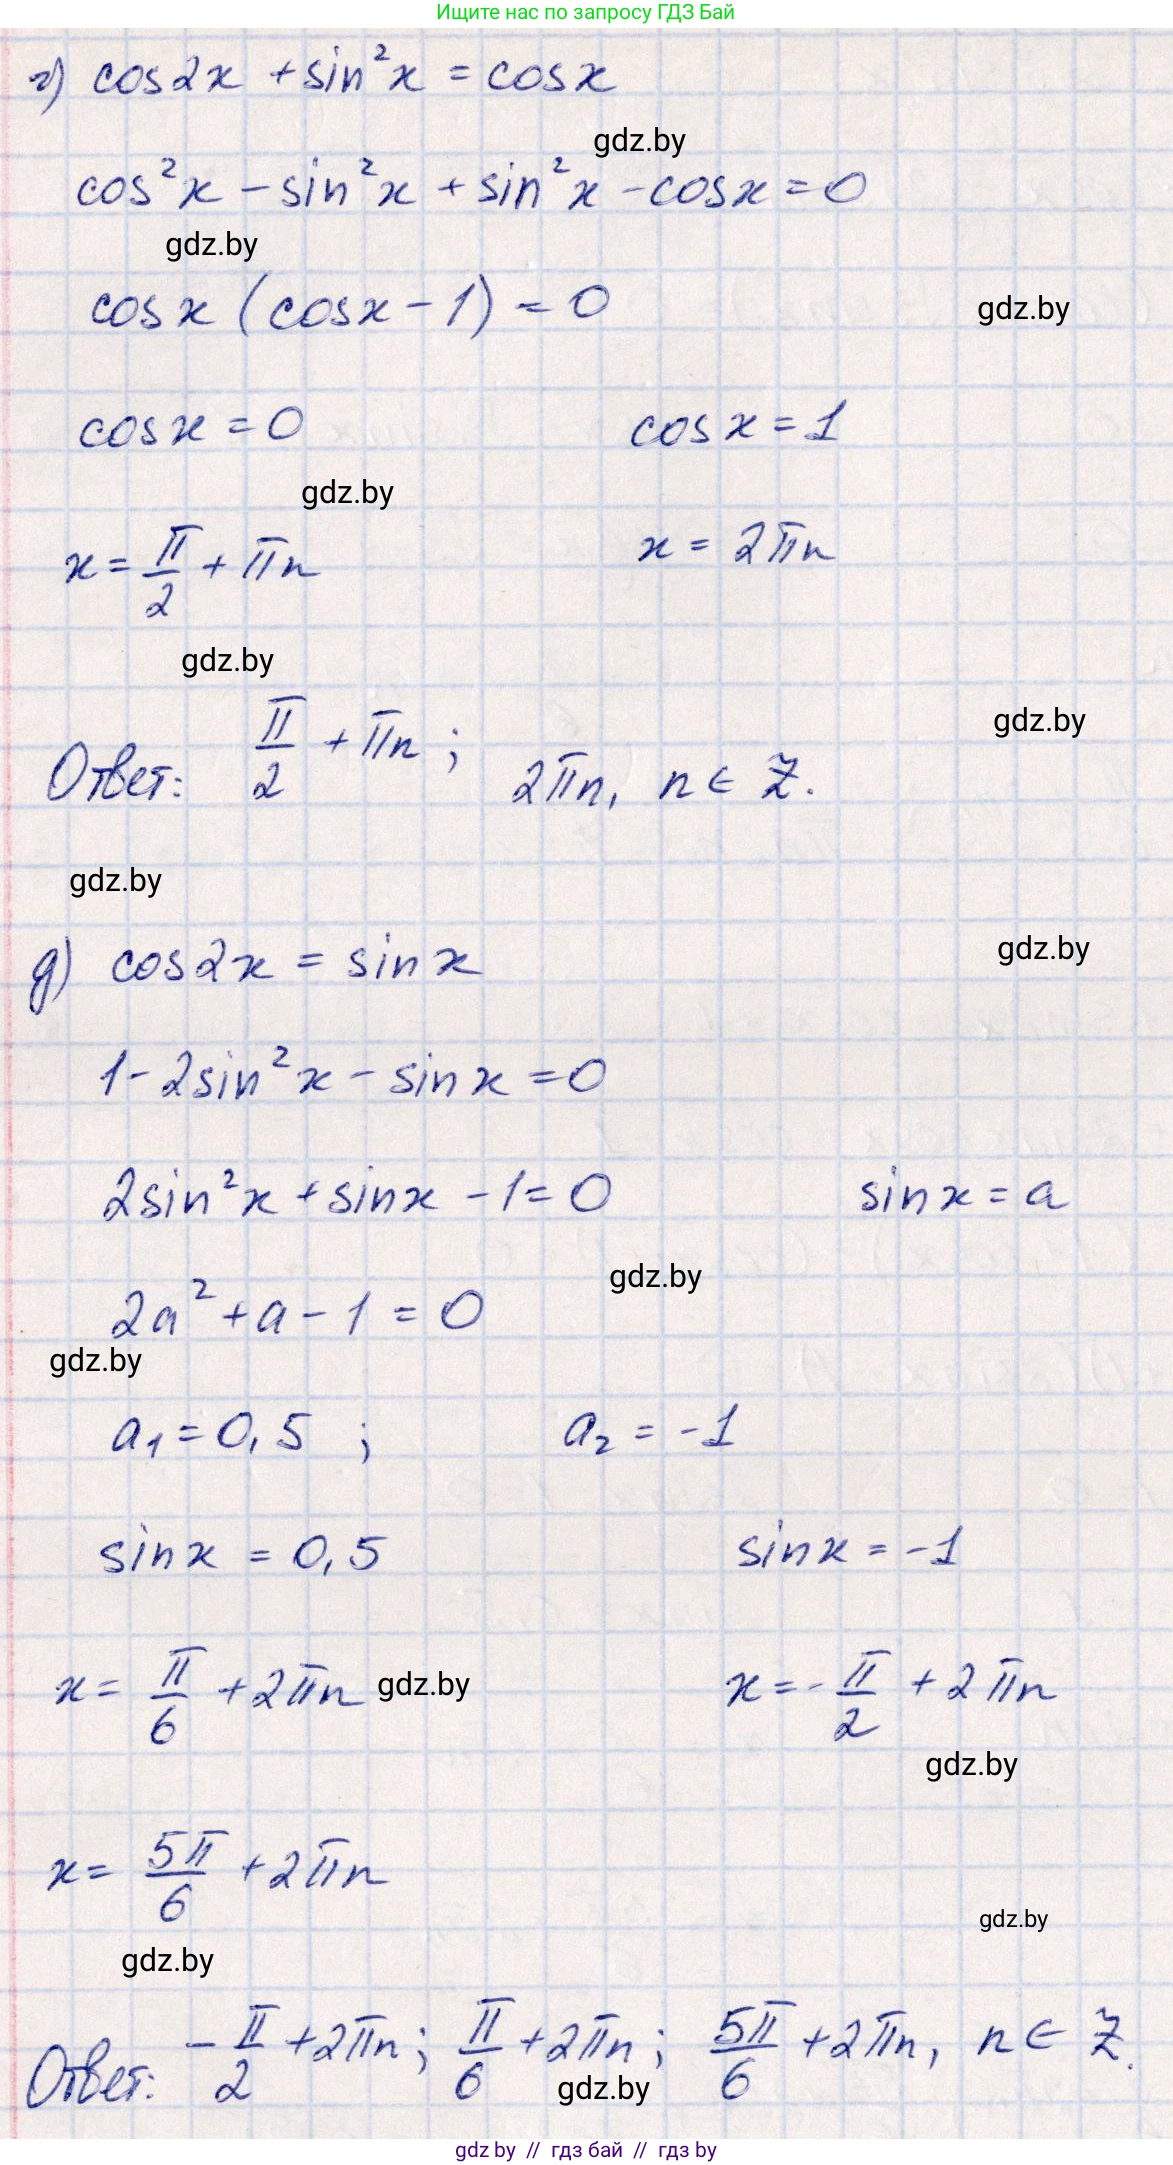 Ищите нас по запросу ГДЗ Бай
г) cos2x + sin²x = cosx
gdz.by
cos²x - sin²x + sin²x - cosx = 0
gdz.by
cosx (cosx - 1) = 0
gdz.by
cosx = 0 cosx = 1
gdz.by
x = π/2 + πn x = 2πn
gdz.by
Ответ: π/2 + πn; 2πn, n ∈ Z.
gdz.by
gdz.by
д) cos2x = sinx
gdz.by
1 - 2sin²x - sinx = 0
2sin²x + sinx - 1 = 0 sinx = a
gdz.by
2a² + a - 1 = 0
gdz.by
a₁ = 0,5 ; a₂ = -1
sinx = 0,5 sinx = -1
x = π/6 + 2πn gdz.by x = -π/2 + 2πn
gdz.by
x = 5π/6 + 2πn
gdz.by
gdz.by
Ответ: -π/2 + 2πn; π/6 + 2πn; 5π/6 + 2πn, n ∈ Z.
gdz.by
gdz by // гдз бай // гдз by